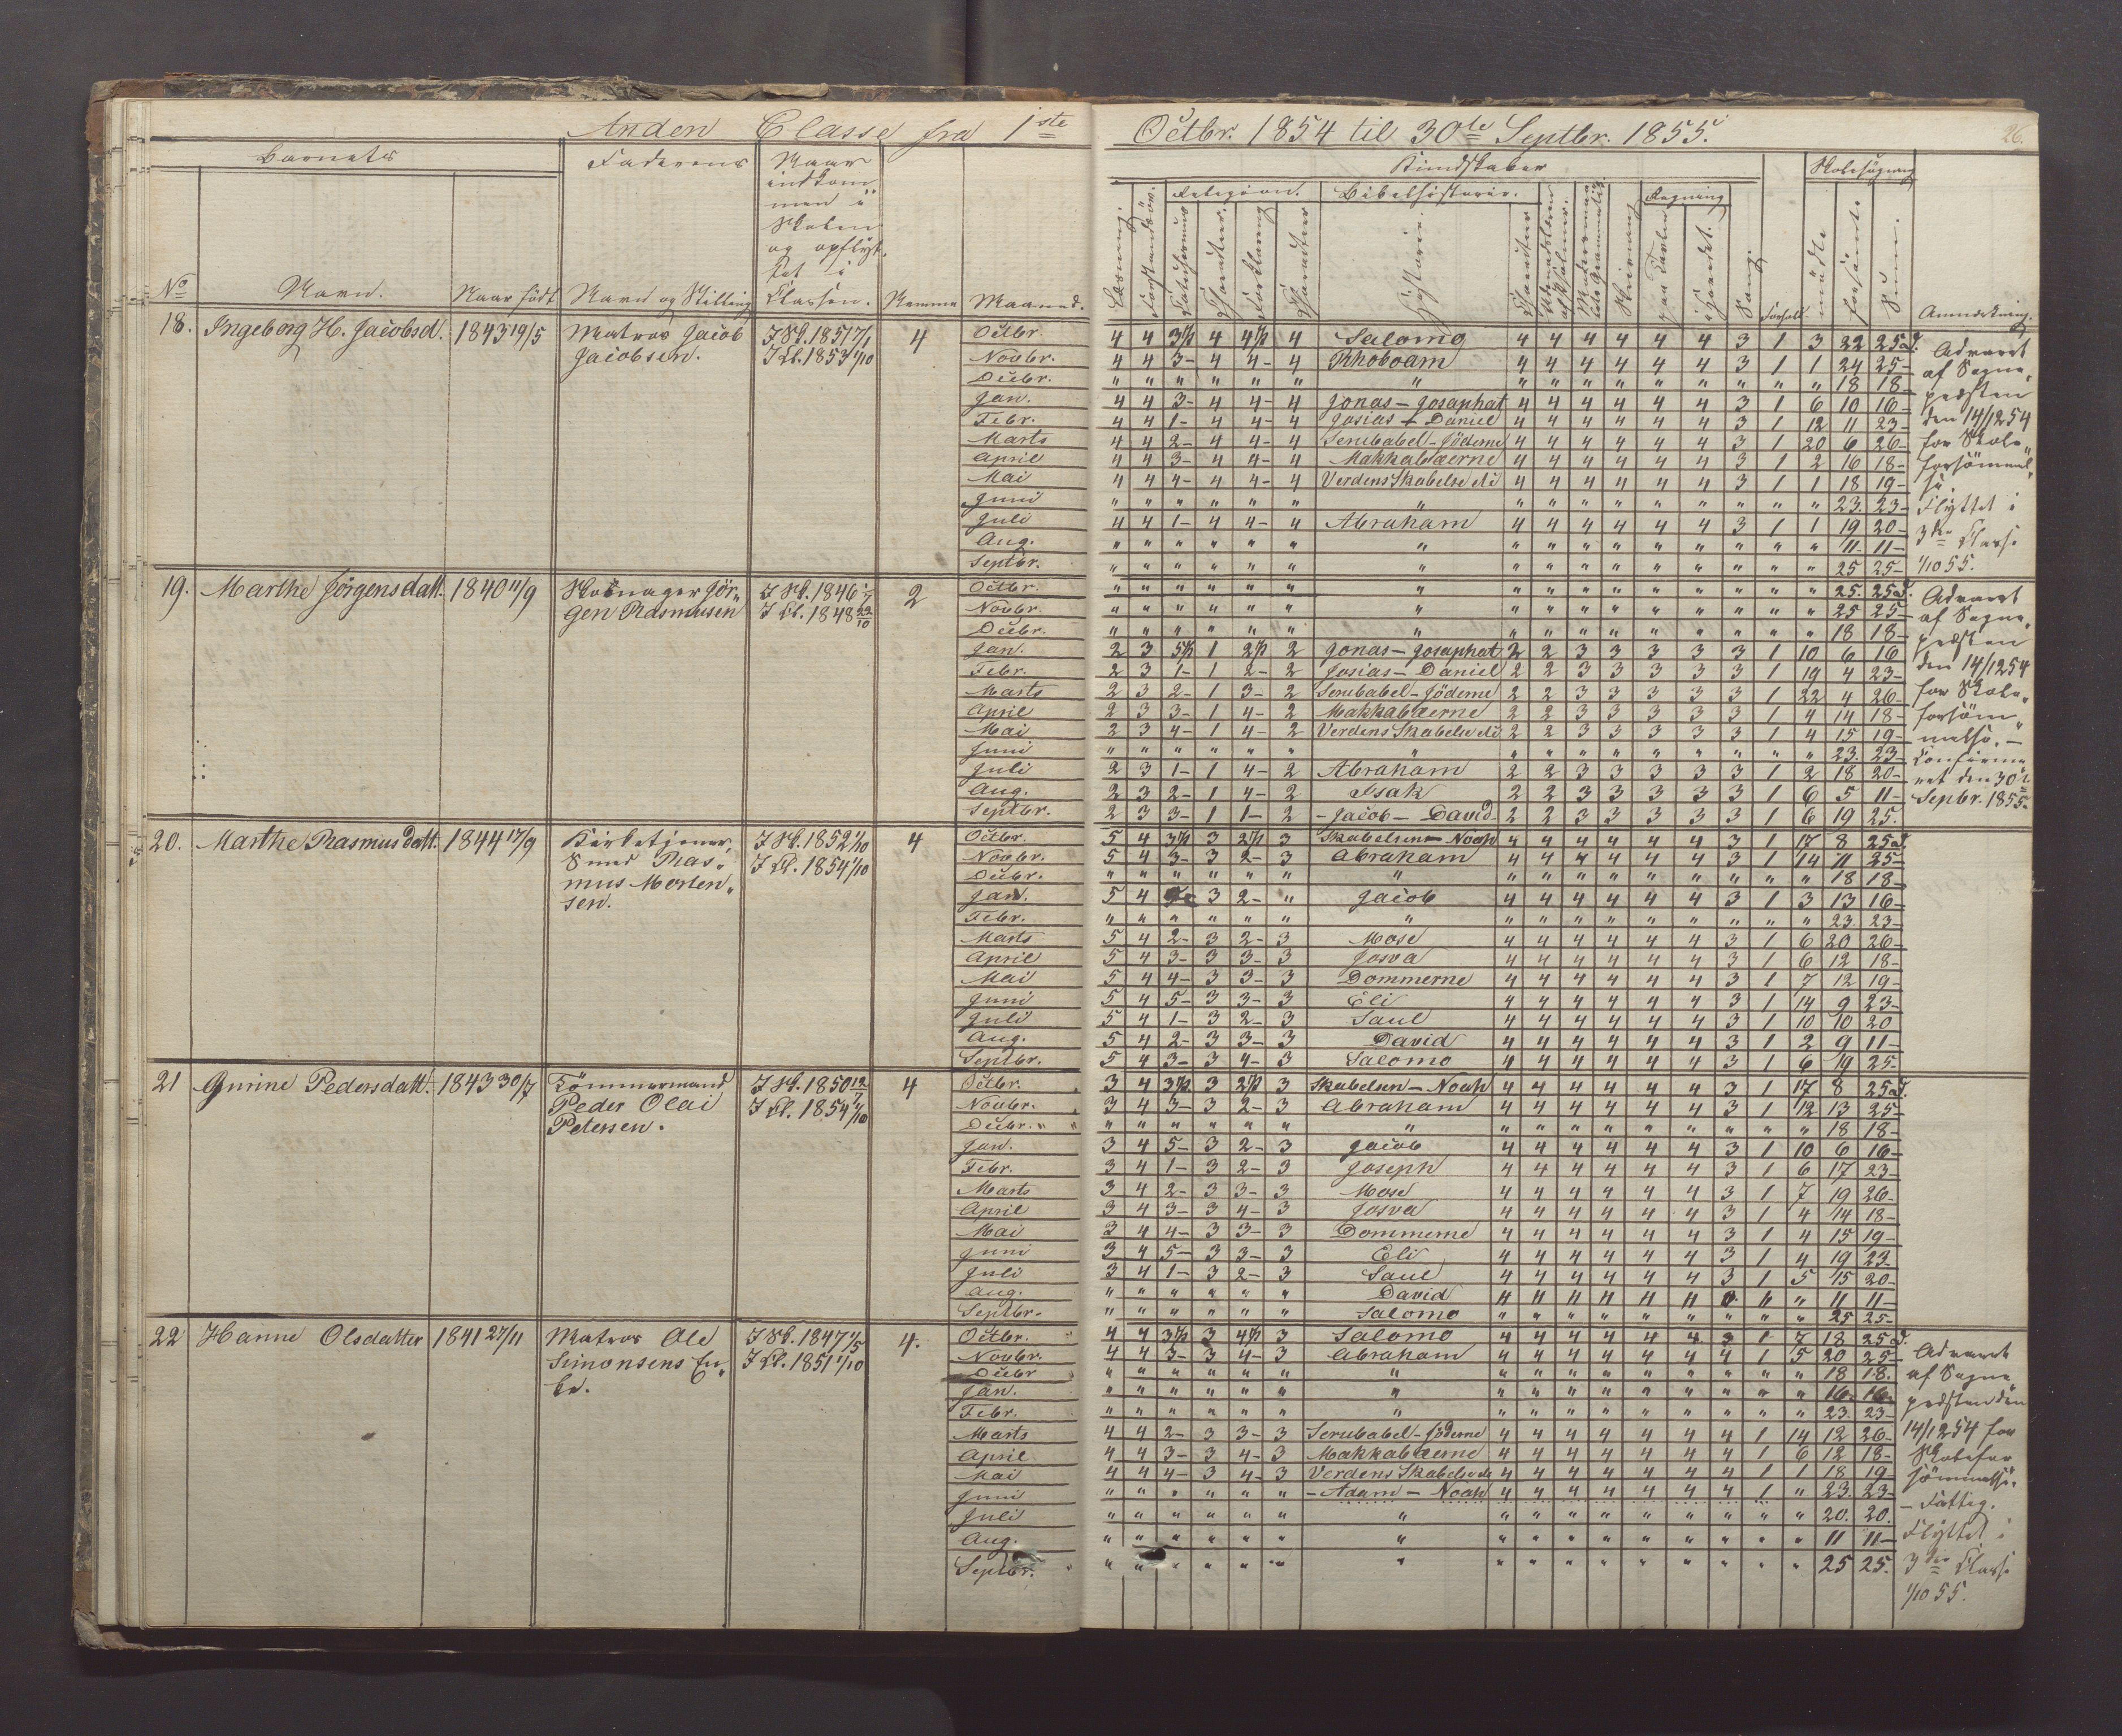 Anden Classe fra 1ste Octbr. 1854 til 30te Septbr. 1855.
26.
Barnets
Faderens
Naar indkommen i Skolen og opflyttet i Classen.
Nemme
Maaned.
Kundskaber
Skolesøgning
Religion.
Bibelhistorie.
Regning
No
Navn.
Naar født
Navn og Stilling
Læsning.
Forklaring
Historie.
Skrivning
paa Tavlen
i Hovedet.
Sang.
Forhold.
mødte
forsømte
Sum.
Anmærkning.
18. Ingeborg H. Jacobsd. 1843 19/5 Matros Jacob Jacobsen. I Sk. 1851 7/1 I Kl. 1853 1/10 4
Octbr 4 4 3½ 4 4½ 4 Salomo 4 4 4 4 4 4 3 1 3 22 25 d.
Novbr. 4 4 3- 4 4- 4 Rhoboam 4 4 4 4 4 4 3 1 1 24 25-
Decbr. " " " " " " " " " " " " " " " " 18 18-
Jan. 4 4 3- 4 4- 4 Jonas - Josaphat 4 4 4 4 4 4 3 1 6 10 16-
Febr. 4 4 1- 4 4- 4 Josias - Daniel 4 4 4 4 4 4 3 1 12 11 23-
Marts 4 4 2- 4 4- 4 Serubabel - Jöderne 4 4 4 4 4 4 3 1 20 6 26-
April 4 4 3- 4 4- 4 Makkabæerne 4 4 4 4 4 4 3 1 2 16 18-
Mai 4 4 4- 4 4- 4 Verdens Skabelse 4 4 4 4 4 4 3 1 1 18 19-
Juni " " " " " " " " " " " " " " " " 23. 23-
Juli 4 4 1- 4 4- 4 Abraham 4 4 4 4 4 4 3 1 1 19 20-
Aug. " " " " " " " " " " " " " " " " 11- 11-
Septbr. " " " " " " " " " " " " " " " " 25 25-
Advaret af Sognepræsten den 14/12 54 for Skoleforsömmelse.
Flyttet i 3die Classe 1/10 55.
19. Marthe Jörgensdatt. 1840 11/9 Jörgen Rasmusen I Sk. 1846 1/7 I Kl. 1848 22/10 2
Octbr. " " " " " " " " " " " " " " " " 25. 25 d.
Novbr. " " " " " " " " " " " " " " " " 25 25-
Decbr. " " " " " " " " " " " " " " " " 18 18-
Jan. 2 3 5½ 1 2½ 2 Jonas - Josaphat 2 2 3 3 3 3 3 1 10 6 16
Febr. 2 3 1- 1 2- 2 Josias - Daniel 2 2 3 3 3 3 3 1 19 4 23-
Marts 2 3 2- 1 3- 2 Serubabel - Jöderne 2 2 3 3 3 3 3 1 22 4 26-
April 2 3 3- 1 4- 2 Makkabæerne 2 2 3 3 3 3 3 1 4 14 18-
Mai 2 3 4- 1 4- 2 Verdens Skabelse 2 2 3 3 3 3 3 1 4 15 19-
Juni " " " " " " " " " " " " " " " " 23. 23-
Juli 2 3 1- 1 4- 2 Abraham 2 2 3 3 3 3 3 1 2 18 20-
Aug. 2 3 2- 1 4- 2 Isak 2 2 3 3 3 3 3 1 6 5 11-
Septbr. 2 3 3- 1 1- 2 - Jacob - David- 2 2 3 3 3 3 3 1 6 19 25.
Advaret af Sognepræsten den 14/12 54 for Skoleforsömmelse. -
Confirmeret den 30te Sepbr. 1855.
20. Marthe Rasmusdatt. 1844 17/9 Rasmus Mortensen. I Sk. 1852 1/10 I Kl. 1854 1/10 4
Octbr. 5 4 3½ 3 2½ 3 Skabelsen - Noah 4 4 4 4 4 4 3 1 17 8 25 d.
Novbr. 5 4 3- 3 2- 3 Abraham 4 4 4 4 4 4 3 1 14 11 25-
Decbr. " " " " " " " " " " " " " " " " 18 18-
Jan. 5 4 3 2- " Jacob 4 4 4 4 4 4 3 1 3 13 16-
Febr. " " " " " " " " " " " " " " " " 23 23-
Marts 5 4 2- 3 2- 3 Mose 4 4 4 4 4 4 3 1 6 20 26-
April 5 4 3- 3 3- 3 Josva 4 4 4 4 4 4 3 1 6 12 18-
Mai 5 4 4- 3 3- 3 Dommerne 4 4 4 4 4 4 3 1 7 12 19-
Juni 5 4 5- 3 3- 3 Eli 4 4 4 4 4 4 3 1 14 9 23-
Juli 5 4 1- 3 2- 3 Saul 4 4 4 4 4 4 3 1 10 10 20
Aug. 5 4 2- 3 3- 3 David 4 4 4 4 4 4 3 1 2 9 11-
Septbr. 5 4 3- 3 4- 3 Salomo 4 4 4 4 4 4 3 1 6 19 25-
21 Gurine Pedersdatt. 1843 30/7 Tömmermand Peder Olai Petersen. I Sk. 1850 12/7 I Kl. 1854 1/10 4
Octbr. 3 4 3½ 3 2½ 3 Skabelsen - Noah 4 4 4 4 4 4 3 1 17 8 25 d.
Novbr. 3 4 3- 3 2- 3 Abraham 4 4 4 4 4 4 3 1 12 13 25-
Decbr. " " " " " " " " " " " " " " " " 18 18-
Jan. 3 4 5- 3 2- 3 Jacob 4 4 4 4 4 4 3 1 10 6 16-
Febr. 3 4 1- 3 2- 3 Joseph 4 4 4 4 4 4 3 1 6 17 23-
Marts 3 4 2- 3 3- 3 Mose 4 4 4 4 4 4 3 1 7 19 26-
April 3 4 3- 3 4- 3 Josva 4 4 4 4 4 4 3 1 4 14 18-
Mai 3 4 4- 3 3- 3 Dommerne 4 4 4 4 4 4 3 1 4 15 19-
Juni 3 4 5- 3 3- 3 Eli 4 4 4 4 4 4 3 1 4 19 23-
Juli 3 4 1- 3 2- 3 Saul 4 4 4 4 4 4 3 1 5 15 20-
Aug. " " " " " " David " " 11 11-
Septbr. " " " " " " Salomo " " " " " " " " " 25 25-
22 Hanne Olsdatter 1841 27/11 Matros Ole Simonsens Enke. I Sk. 1847 1/5 I Kl. 1851 1/10 4.
Octbr. 4 4 3½ 3 4½ 3 Salomo 4 4 4 4 4 4 3 1 7 18 25 d.
Novbr. 4 4 3- 3 4- 3 Abraham 4 4 4 4 4 4 4 1 5 20 25-
Decbr " " " " " " " " " " " " " " " " 18 18.
Jan. " " " " " " " " " " " " " " " " 16. 16.
Febr. " " " " " " " " " " " " " " " " 23. 23-
Marts 4 4 2- 3 3- 3 Serubabel - Jöderne 4 4 4 4 4 4 4 1 14 12 26-
April 4 4 3- 3 4- 3 Makkabæerne 4 4 4 4 4 4 4 1 6 12 18-
Mai 4 4 4- 3 4- 3 Verdens Skabelse 4 4 4 4 4 4 4 1 1 18 19
Juni " " " " " " - Adam - Noah 4 4 4 4 4 4 4 1 " 23. 23-
Juli " " " " " " " " " " " " " " " " 20. 20.
Aug. " " " " " " " " " " " " " " " " 11 11-
Septbr. " " " " " " " " " " " " " " " " 25 25.
Advaret af Sognepræsten den 14/12 54 for Skoleforsömmelse.
- Fattig.
Flyttet i 3die Classe 1/10 55.